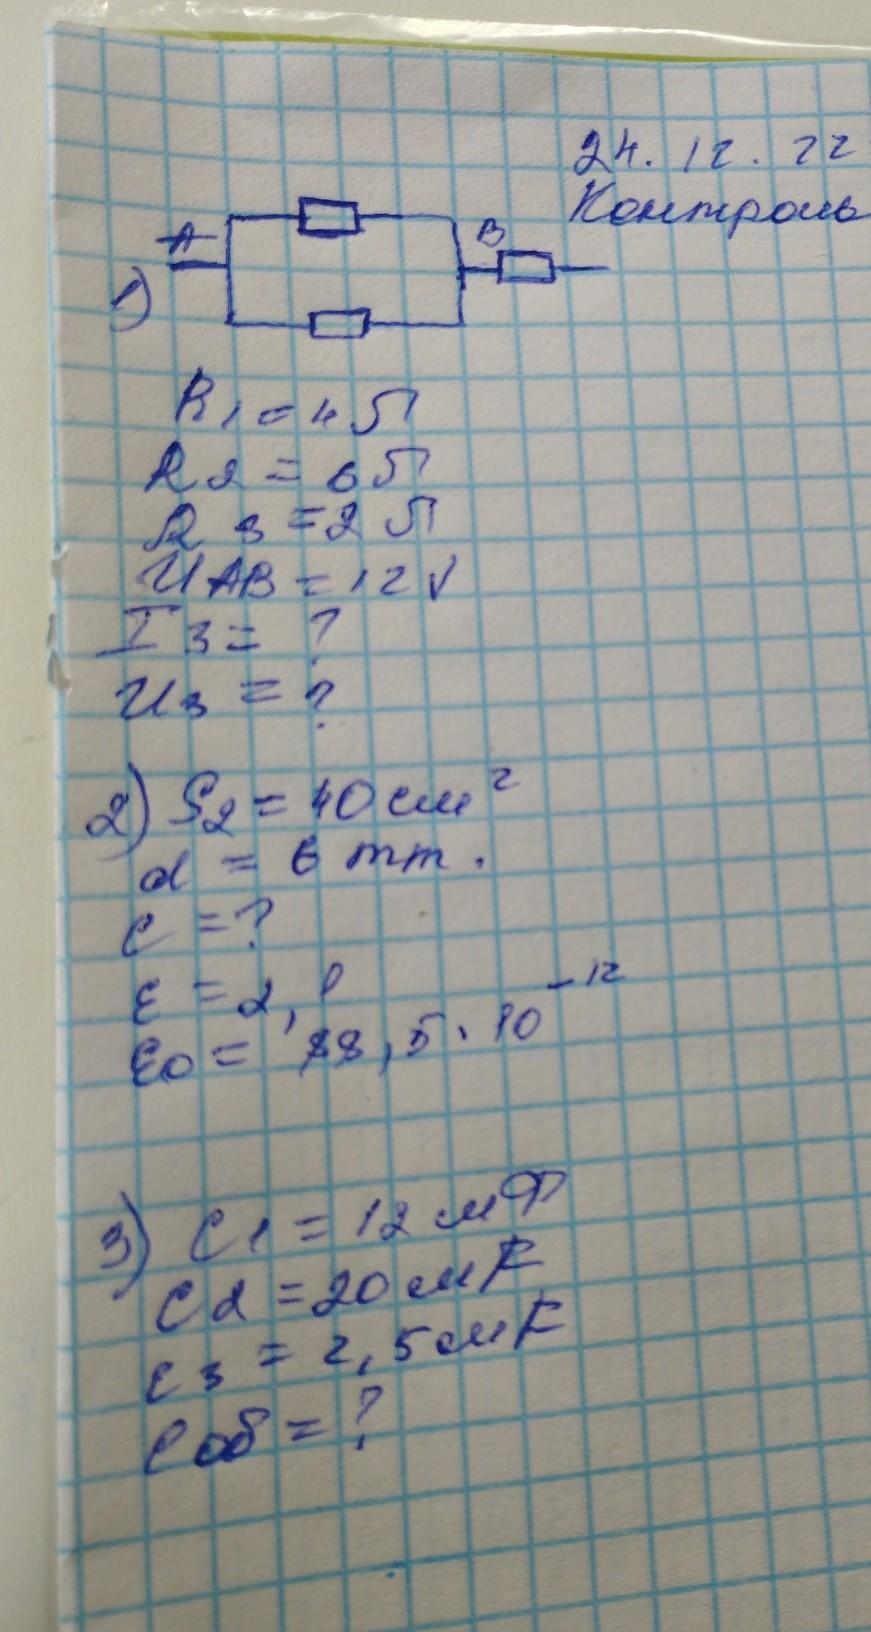 24.12.22
Контроль
A
B
1)
R1 = 4 Ω
R2 = 6 Ω
R3 = 2 Ω
UAB = 12 V
I3 = ?
U3 = ?
2) S2 = 40 см²
d = 6 mm.
C = ?
ε = 2,1
ε0 = 88,5 · 10⁻¹²
3) C1 = 12 мФ
C2 = 20 мF
C3 = 2,5 мF
Cоб = ?